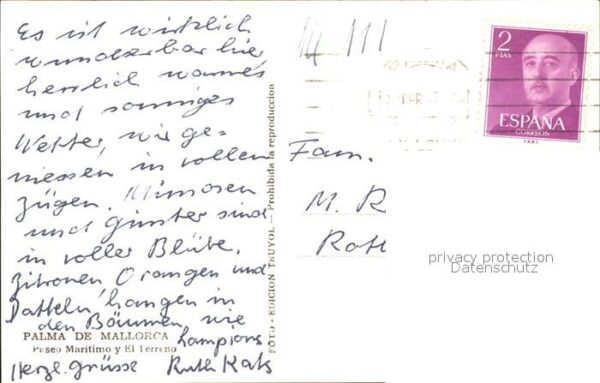 Es ist wirklich
wunderbar hier
herrlich warmes
und sonniges
Wetter, wir ge-
niessen in vollen
Zügen. Mimosen
und Ginster sind
in voller Blüte.
Zitronen Orangen und
Datteln hangen in
den Bäumen, wie
Lampions
Herzl. Grüsse Ruth Kats
PALMA DE MALLORCA
Paseo Marítimo y El Terreno
FOTO - EDICION TRUYOL - Prohibida la reproduccion
2
PTAS
ESPAÑA
CORREOS
Fam.
M. R
Rott
privacy protection
Datenschutz